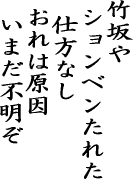 竹坂や
ションベンたれた
仕方なし
おれは原因
いまだ不明ぞ